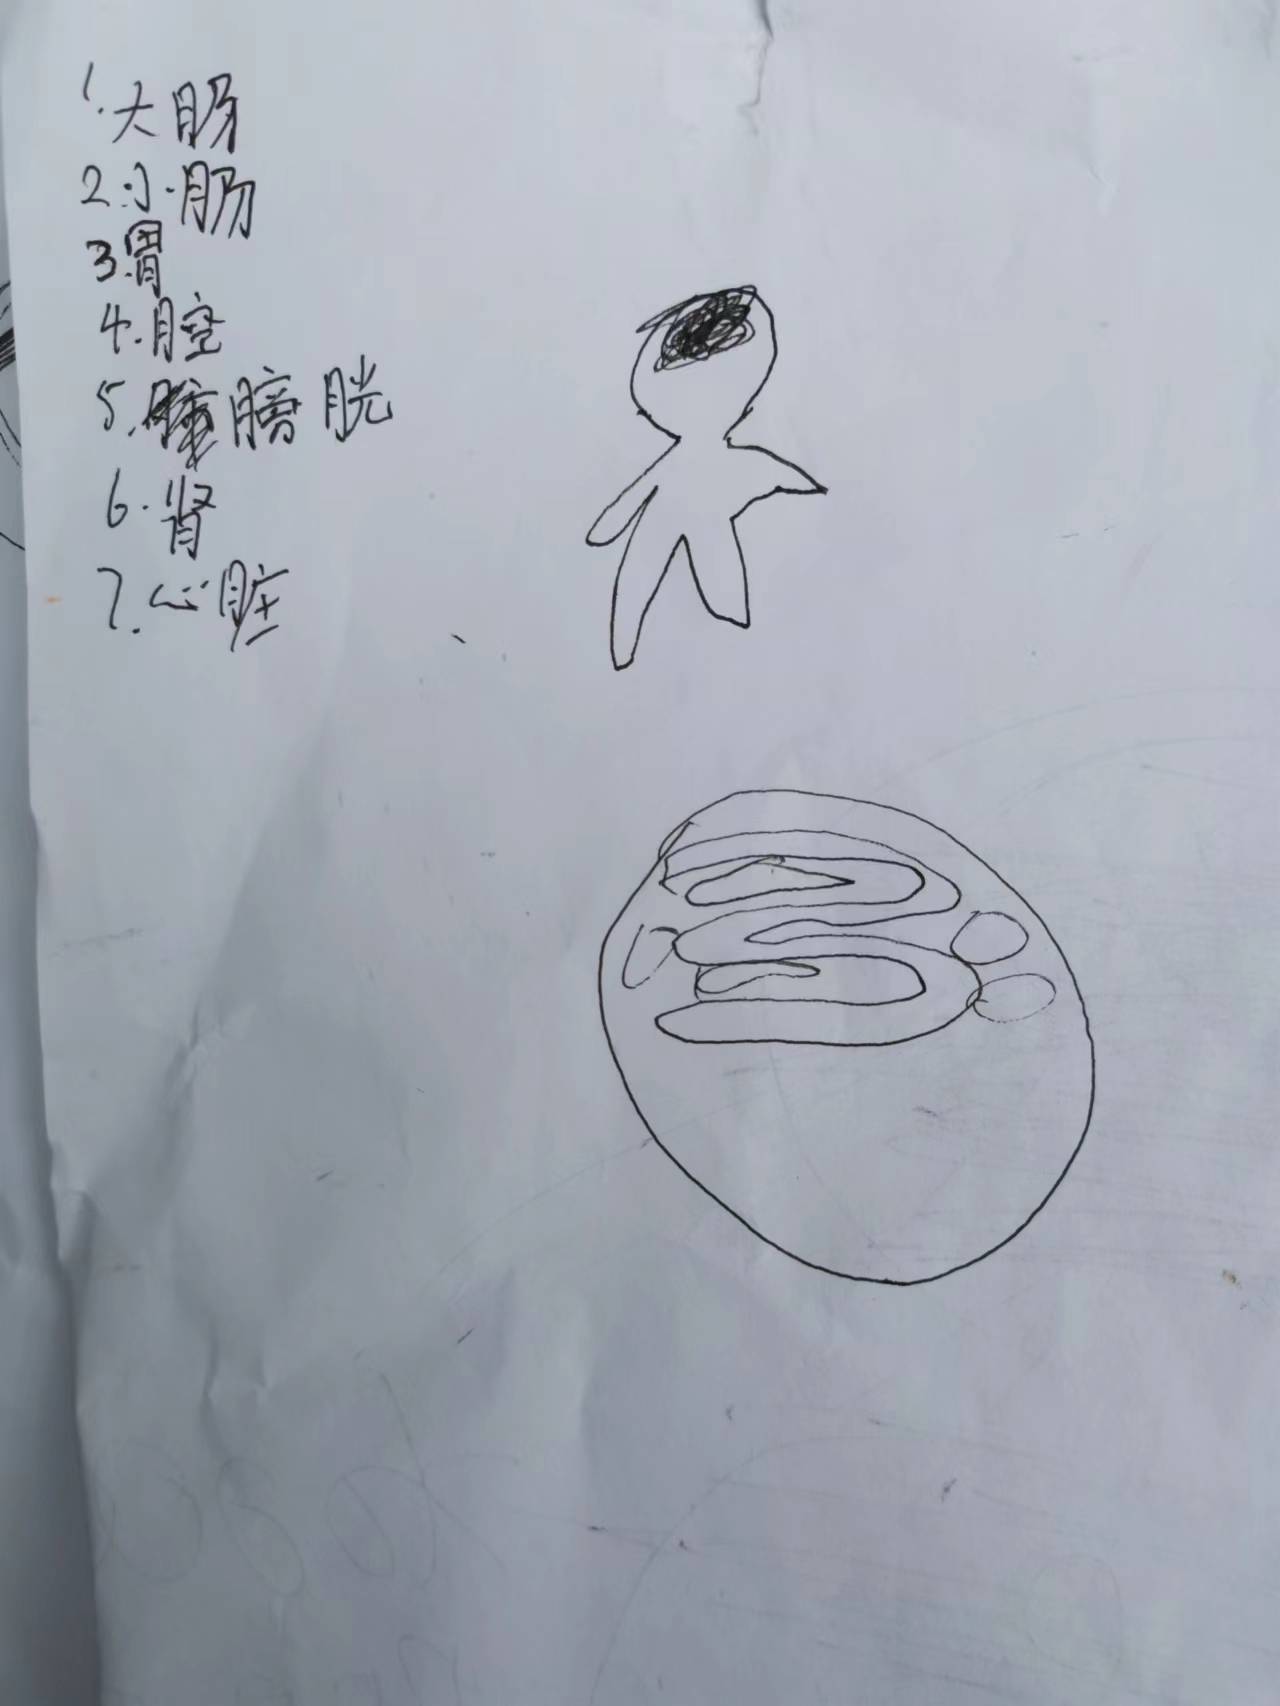 1.大肠
2.小肠
3.胃
4.腔
5.膀胱
6.肾
7.心脏